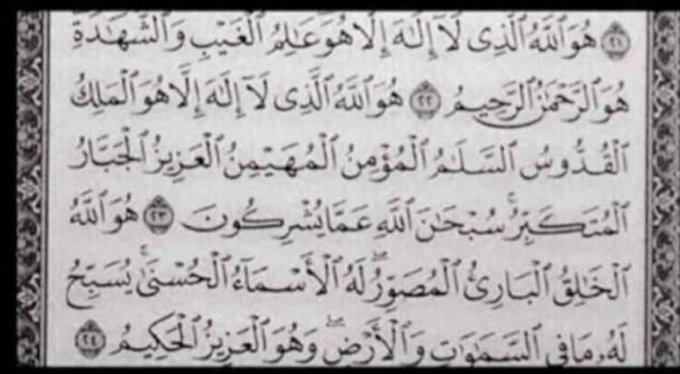 ﴿٢١﴾ هُوَ ٱللَّهُ ٱلَّذِى لَآ إِلَٰهَ إِلَّا هُوَ عَٰلِمُ ٱلْغَيْبِ وَٱلشَّهَٰدَةِ
هُوَ ٱلرَّحْمَٰنُ ٱلرَّحِيمُ ﴿٢٢﴾ هُوَ ٱللَّهُ ٱلَّذِى لَآ إِلَٰهَ إِلَّا هُوَ ٱلْمَلِكُ
ٱلْقُدُّوسُ ٱلسَّلَٰمُ ٱلْمُؤْمِنُ ٱلْمُهَيْمِنُ ٱلْعَزِيزُ ٱلْجَبَّارُ
ٱلْمُتَكَبِّرُ ۚ سُبْحَٰنَ ٱللَّهِ عَمَّا يُشْرِكُونَ ﴿٢٣﴾ هُوَ ٱللَّهُ
ٱلْخَٰلِقُ ٱلْبَارِئُ ٱلْمُصَوِّرُ ۖ لَهُ ٱلْأَسْمَآءُ ٱلْحُسْنَىٰ ۚ يُسَبِّحُ
لَهُۥ مَا فِى ٱلسَّمَٰوَٰتِ وَٱلْأَرْضِ ۖ وَهُوَ ٱلْعَزِيزُ ٱلْحَكِيمُ ﴿٢٤﴾